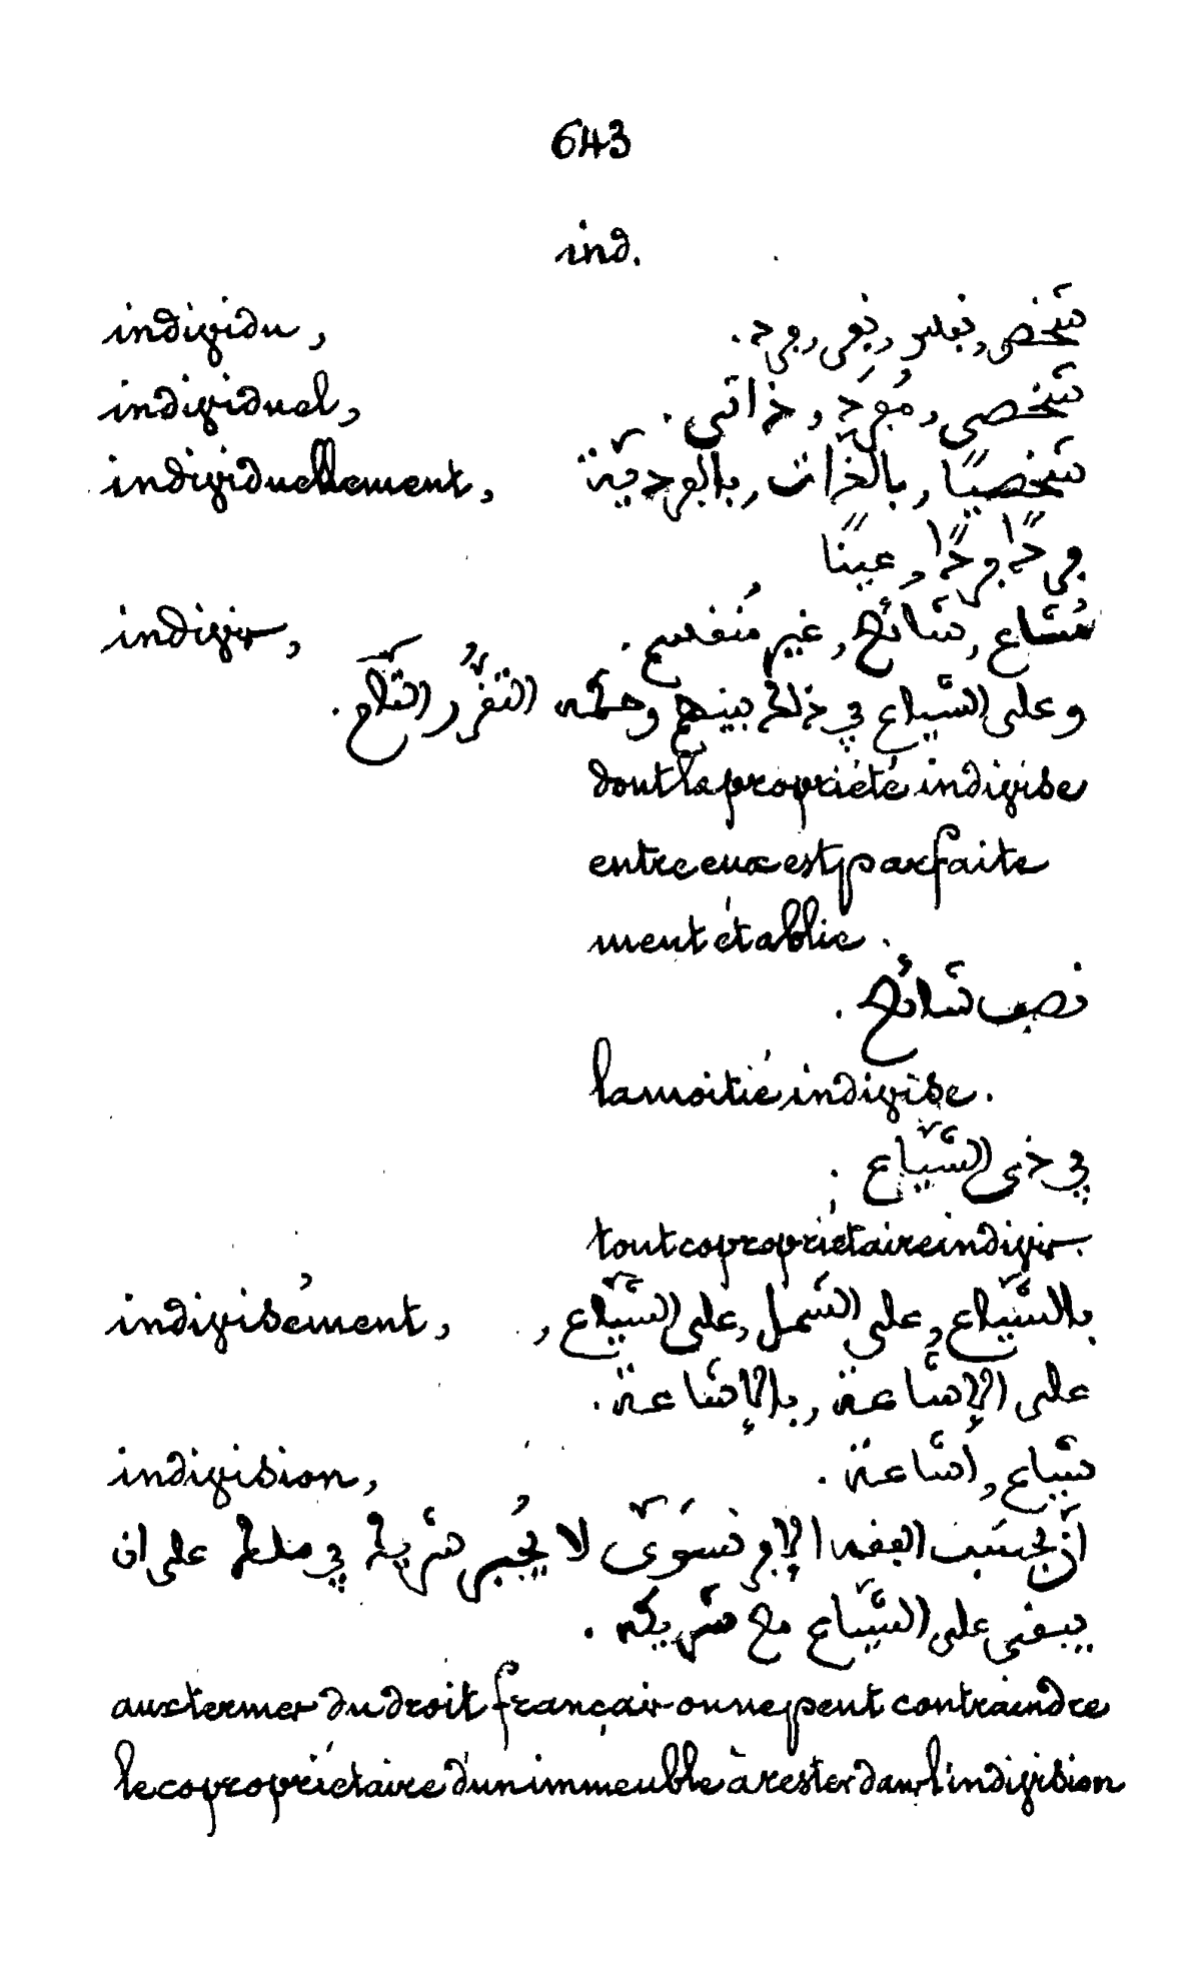 643
ind.
individu, شخص, نفس, نفر, فرد.
individuel, شخصي, مُفرد, ذاتي.
individuellement, شخصيًّا, بالذات, بالفرديّة
فردًا فردًا, عينًا
indivis, مُشاع, شائع, غير مُنقسم.
وعلى الشياع في ذلك بينهم وحكمه التقرُّر التّام.
dont la propriété indivise
entre eux est parfaite
ment établie.
نصف شائع.
la moitié indivise.
في الشّياع.
tout copropriétaire indivis.
indivisément, بالشّياع, على الشمل, على الشّياع,
على الإشاعة, بالإشاعة.
indivision, شياع, اشاعة.
الفقه الإفرنسَوي لا يُجبر شريك في ملك على ان
يبقى على الشّياع مع شريكه.
aux termes du droit français on ne peut contraindre
le copropriétaire d'un immeuble à rester dans l'indivision